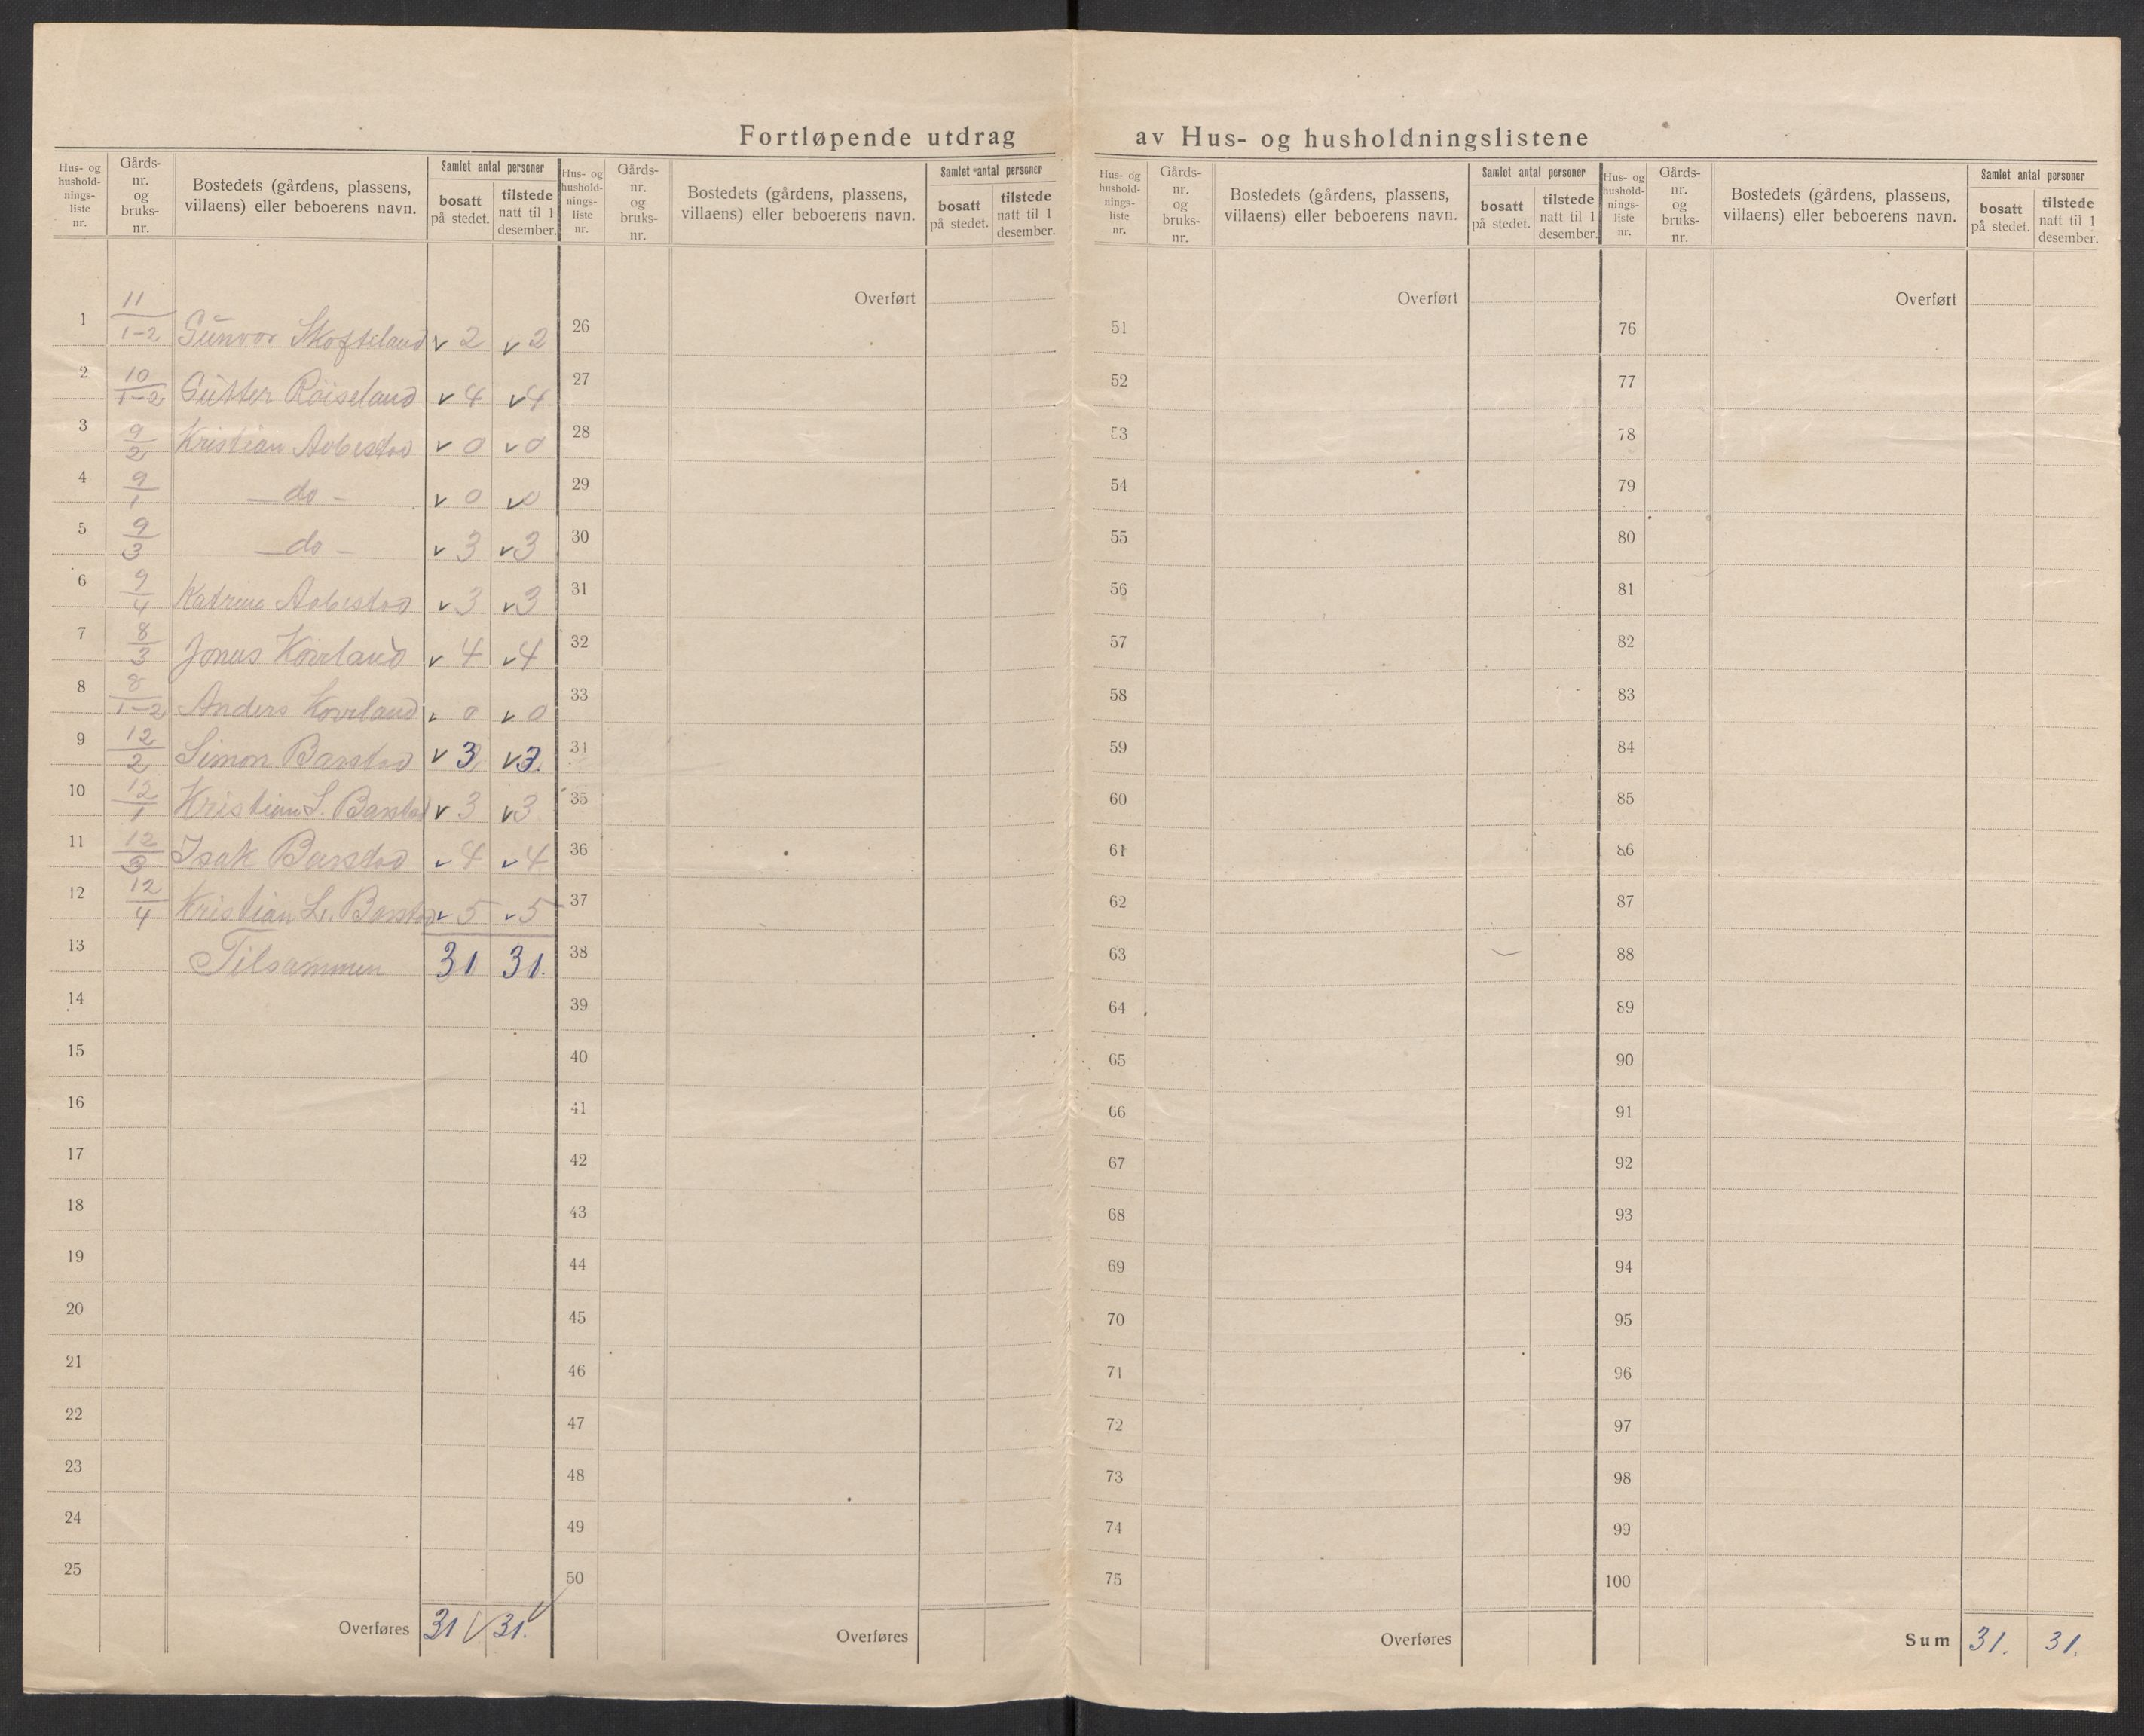 Fortløpende utdrag av Hus- og husholdningslistene
Hus- og hushold-nings-liste nr. | Gårds-nr. og bruks-nr. | Bostedets (gårdens, plassens, villaens) eller beboerens navn. | Samlet antal personer | bosatt på stedet. | tilstede natt til 1 desember.
1 | 11/1-2 | Gunvor Skofteland | v 2 | v 2
2 | 10/1-2 | Røiseland | v 4 | v 4
3 | 9/2 | Kristian Aabestad | v 0 | v 0
4 | 9/1 | — do - | v 0 | v 0
5 | 9/3 | — do - | v 3 | v 3
6 | 9/4 | Katrine Aabestad | v 3 | v 3
7 | 8/3 | Jonas Kovland | v 4 | v 4
8 | 8/1-2 | Anders Kovland | v 0 | v 0
9 | 12/2 | Simon Barstad | v 3 | v 3.
10 | 12/1 | Kristian S. Barstad | v 3 | v 3
11 | 12/3 | Isak Barstad | v 4 | v 4
12 | 12/4 | Kristian L. Barstad | v 5 | v 5
13 | Tilsammen | 31 | 31.
14
15
16
17
18
19
20
21
22
23
24
25
Overføres 31 v 31. v
Hus- og hushold-nings-liste nr. | Gårds-nr. og bruks-nr. | Bostedets (gårdens, plassens, villaens) eller beboerens navn. | Samlet antal personer | bosatt på stedet. | tilstede natt til 1 desember.
Overført
26
27
28
29
30
31
32
33
34
35
36
37
38
39
40
41
42
43
44
45
46
47
48
49
50
Overføres
Hus- og hushold-nings-liste nr. | Gårds-nr. og bruks-nr. | Bostedets (gårdens, plassens, villaens) eller beboerens navn. | Samlet antal personer | bosatt på stedet. | tilstede natt til 1 desember.
Overført
51
52
53
54
55
56
57
58
59
60
61
62
63
64
65
66
67
68
69
70
71
72
73
74
75
Overføres
Hus- og hushold-nings-liste nr. | Gårds-nr. og bruks-nr. | Bostedets (gårdens, plassens, villaens) eller beboerens navn. | Samlet antal personer | bosatt på stedet. | tilstede natt til 1 desember.
Overført
76
77
78
79
80
81
82
83
84
85
86
87
88
89
90
91
92
93
94
95
96
97
98
99
100
Sum 31. 31.